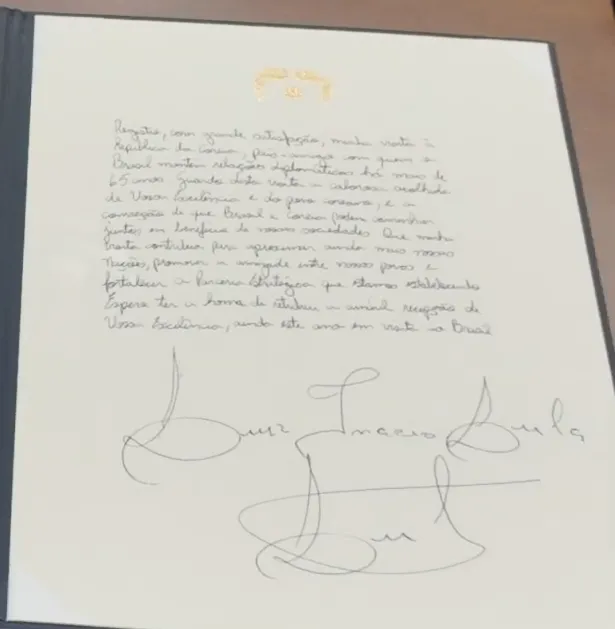 Registro, com grande satisfação, minha visita à
República da Coreia, país-amigo com quem o
Brasil mantém relações diplomáticas há mais de
65 anos. Guardo desta visita a calorosa acolhida
de Vossa Excelência e do povo coreano, e a
convicção de que Brasil e Coreia podem caminhar
juntos em benefício de nossas sociedades. Que minha
visita contribua para aproximar ainda mais nossas
Nações, promover a amizade entre nossos povos e
fortalecer a Parceria Estratégica que estamos estabelecendo
Espero ter a honra de retribuir a amável recepção de
Vossa Excelência, ainda este ano em visita ao Brasil
Luiz Inacio Lula
Lula